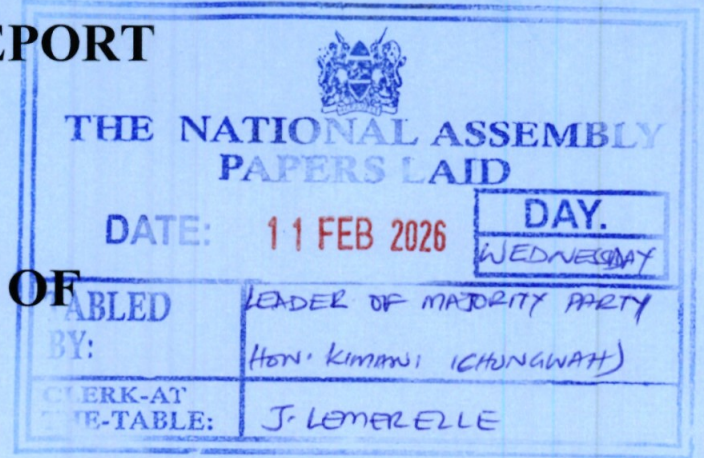 EPORT
THE NATIONAL ASSEMBLY
PAPERS LAID
DATE: 11 FEB 2026
DAY.
WEDNESDAY
OF
TABLED BY:
LEADER OF MAJORITY PARTY
HON. KIMANI ICHUNGWAH)
CLERK-AT THE-TABLE:
J. LEMERELLE